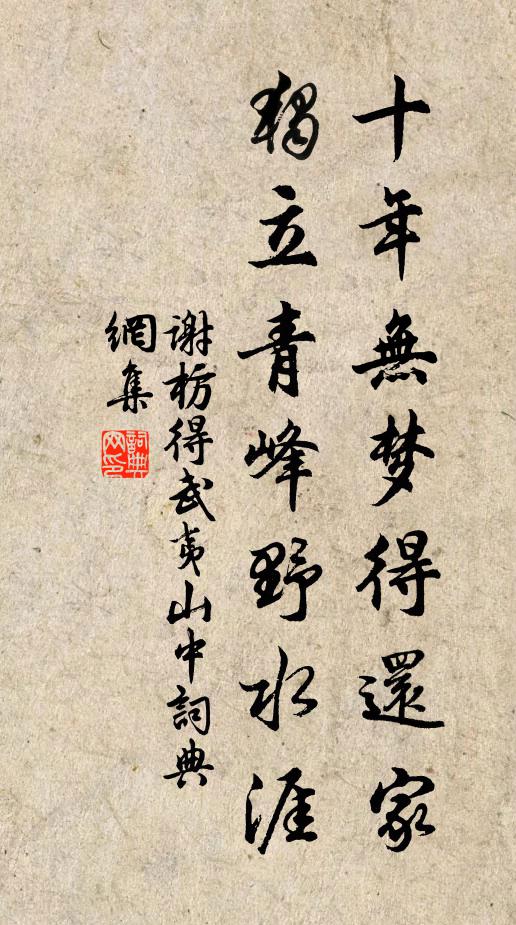 十年無梦得還家
独立青峰野水涯
谢枋得武夷山中詞典
網集
詞典网印